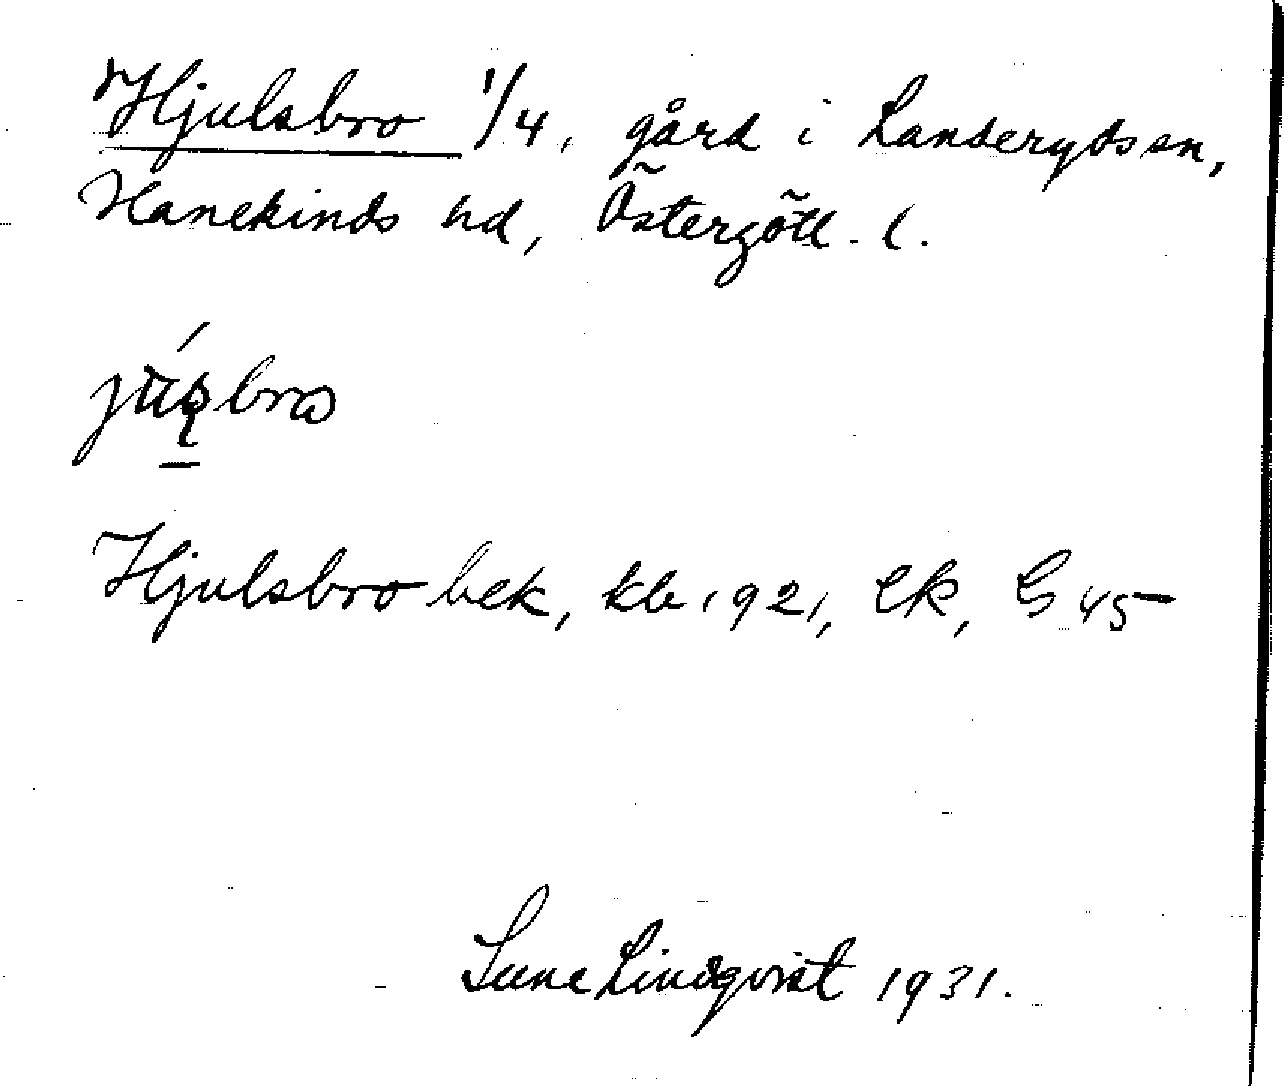 Hjulsbro 1/4, gård i Landerydssn,
Hanekinds hd, Östergötl. l.
Hjulsbro bek, kb 1921, EK, G 45
Sune Lindqvist 1931.